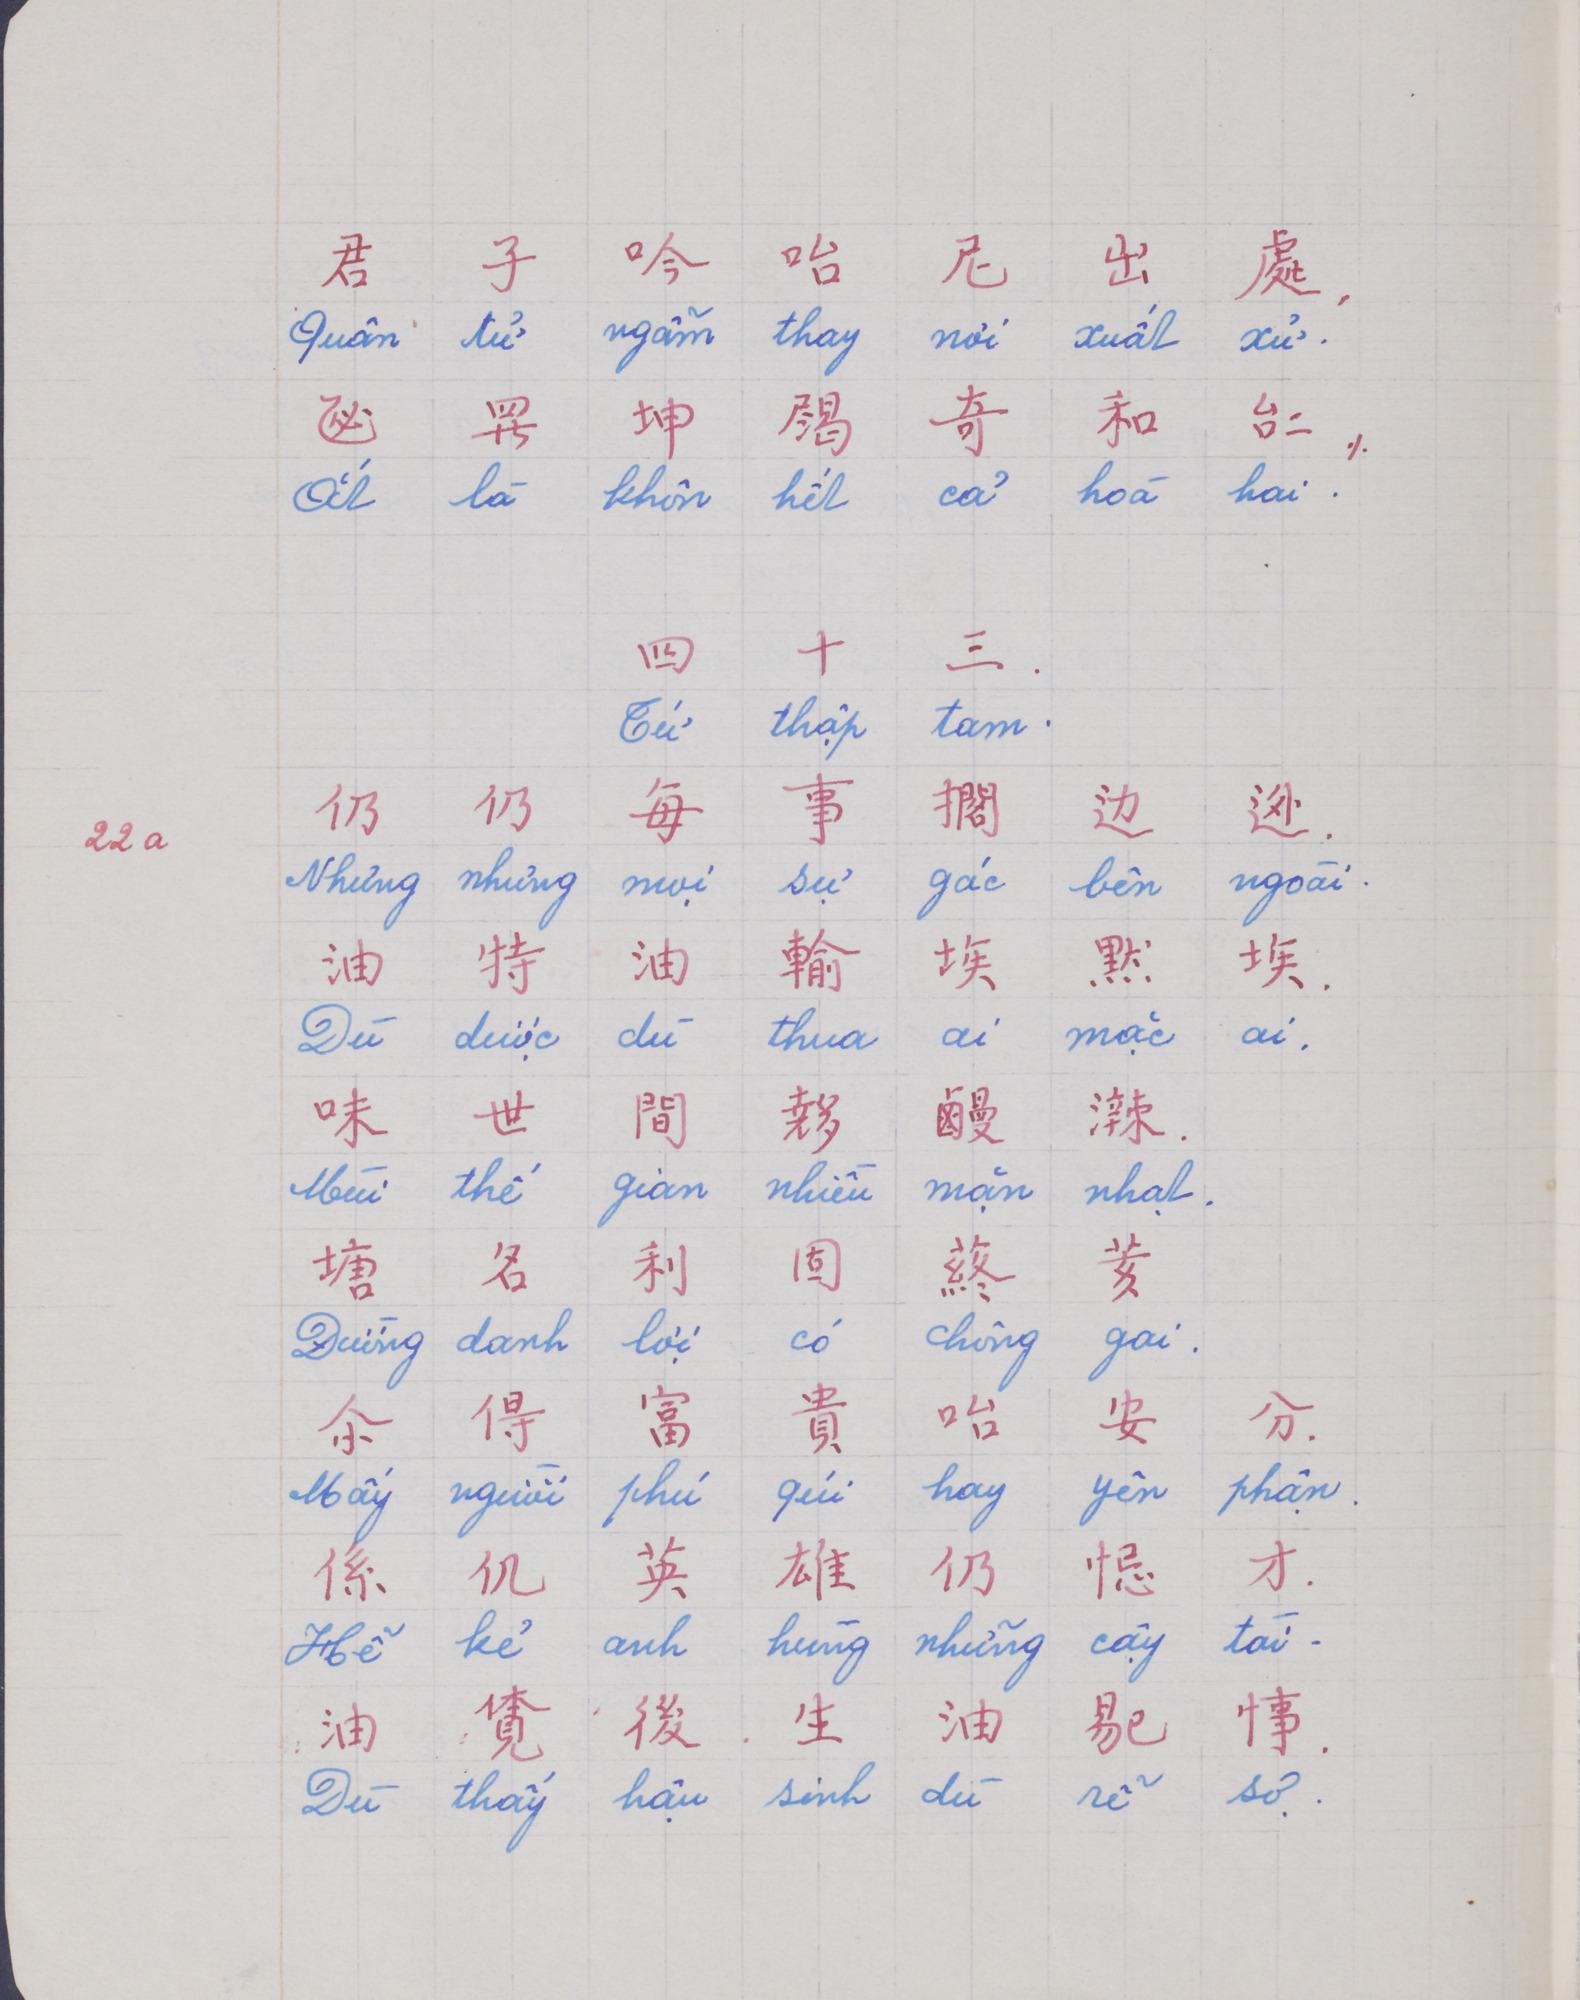 君 子 吟 咍 尼 出 處,
Quân tử ngẫm thay nơi xuất xử.
坤 奇 和 台二.
Ất là khôn hết cả hoà hai.
四 十 三.
Tứ thập tam.
仍 仍 每 事 擱 边 逊.
22a
Nhưng nhưng mọi sự gác bên ngoài.
油 特 油 輸 埃 默 埃.
Dù được dù thua ai mặc ai.
味 世 間 𡗉 辢.
Mùi thế gian nhiều mặn nhạt.
塘 名 利 固 荄
Đường danh lợi có chông gai.
余 得 富 貴 咍 安 分.
Mấy người phú quí hay yên phận.
係 仉 英 雄 仍 才.
Hễ kẻ anh hùng những cậy tài-
油 覓 後 生 油 事.
Dù thấy hậu sinh dù rễ sợ.